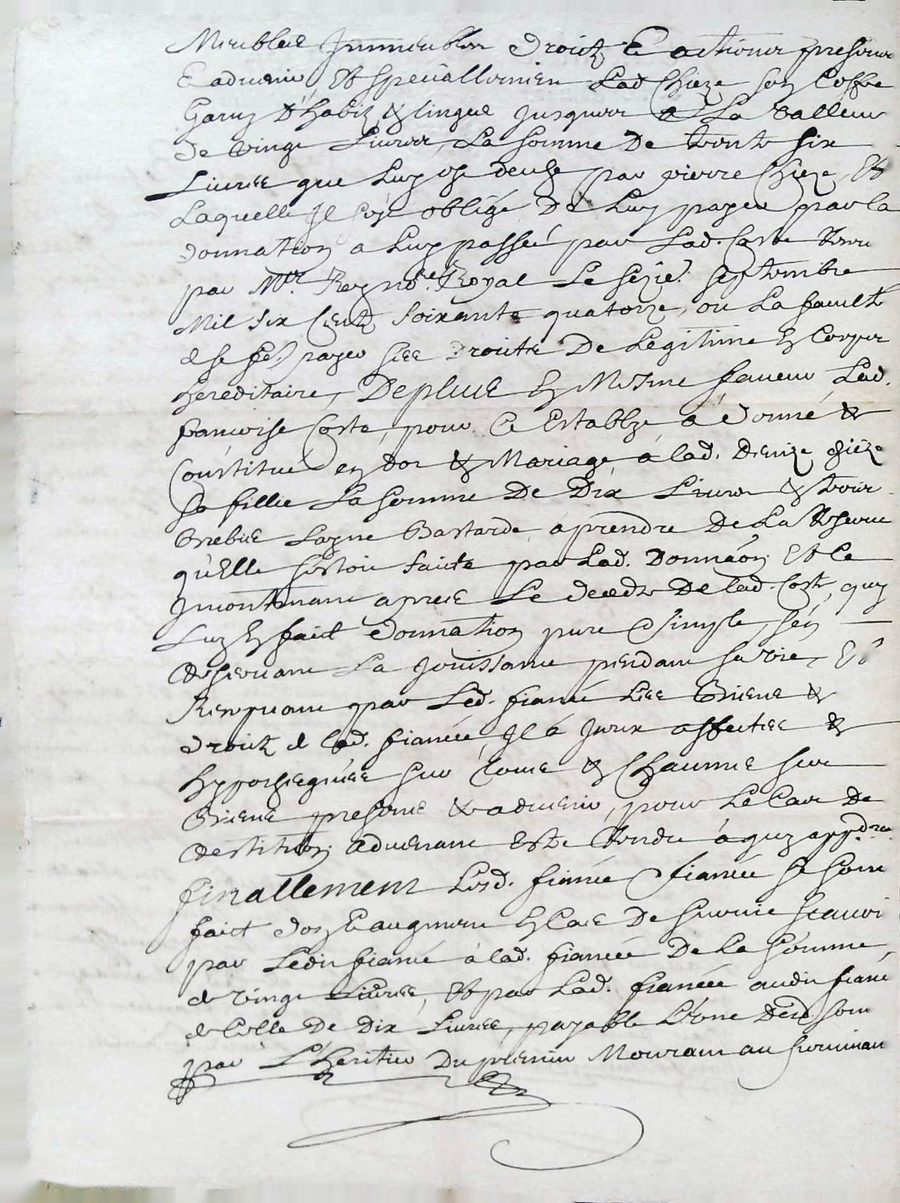 Meubles Jmmeubles droitz & actions presans
& advenir, Et speciallemen Lad Chieze son Coffre
Garny d'habitz & linges jusques a La Valleur
de vingt Livres, La somme De trente six
Livres que Luy est deube par pierre Chieze, Et
Laquelle Jl s'est obligé De Luy payer par la
donnation a Luy passée par Lad. Coste Receu
par Mre Reynd. Royal Le seze. Septembre
Mil six Centz soixante quatorze, ou La faculté
de se fe. payer ses droitz De Legitime En Corps
hereditaire, De plus En Mesme faveur Lad.
francoise Coste, pour Ce Establye a donné &
Constitué en dot & Mariage a lad. Denize Chieze
Sa fillie La somme De Dix Livres & trois
brebis Layne Bastarde, a prendre De La Reserve
qu'Elle s'estoit faicte par Lad. Donnaon, Et Ce
Jncontinant apres Le deceds De lad. Coste, quy
Luy En faict donnation pure & simple, s'en
Reservant La Jouissance pendant sa vie, Et
Recepvant par Led. fiancé Les Biens &
droitz de lad. fiancée, Jl a Jceux affectes &
hypotequées sur tous & Chauns ses
Biens presens & advenir, pour Le Cas De
Restituon advenant Estre Rendu a quy appdra
finallement Lesd. fiancé & fiancée se sont
faict don & augment En Cas De survie scavoir
par Ledit fiancé a lad. fiancée De La somme
de vingt Livres, Et par Lad. fiancée audit fiancé
de Celle De Dix Livres, payable L'un Desd. dons
par L'heritier Du premier Mourant au survivant